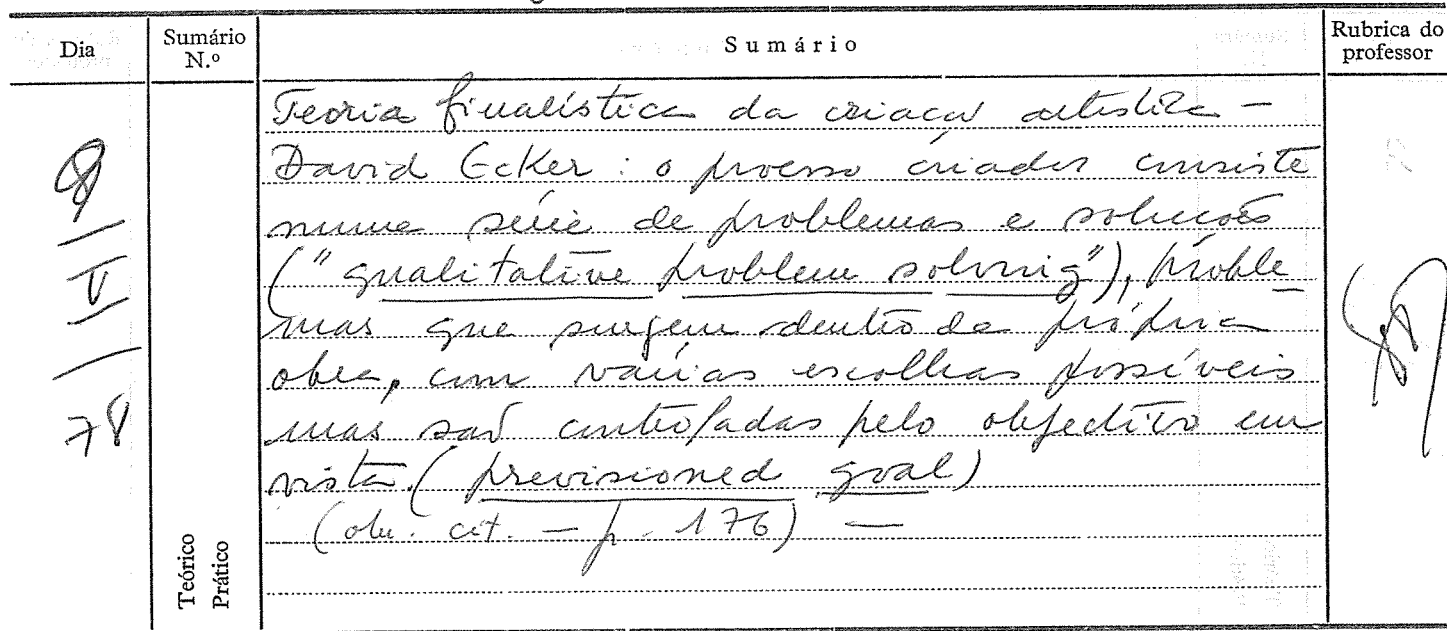 Dia
Sumário N.º
Sumário
Rubrica do professor
8/V/78
Teórico
Prático
Teoria finalística da criação artística —
David Ecker : o processo criador consiste
numa série de problemas e soluções
("qualitative problem solving"), proble
mas que surgem dentro da própria
obra, com várias escolhas possíveis
mas são controladas pelo objectivo em
vista. (previsioned goal)
(ob. cit. — p. 176) —